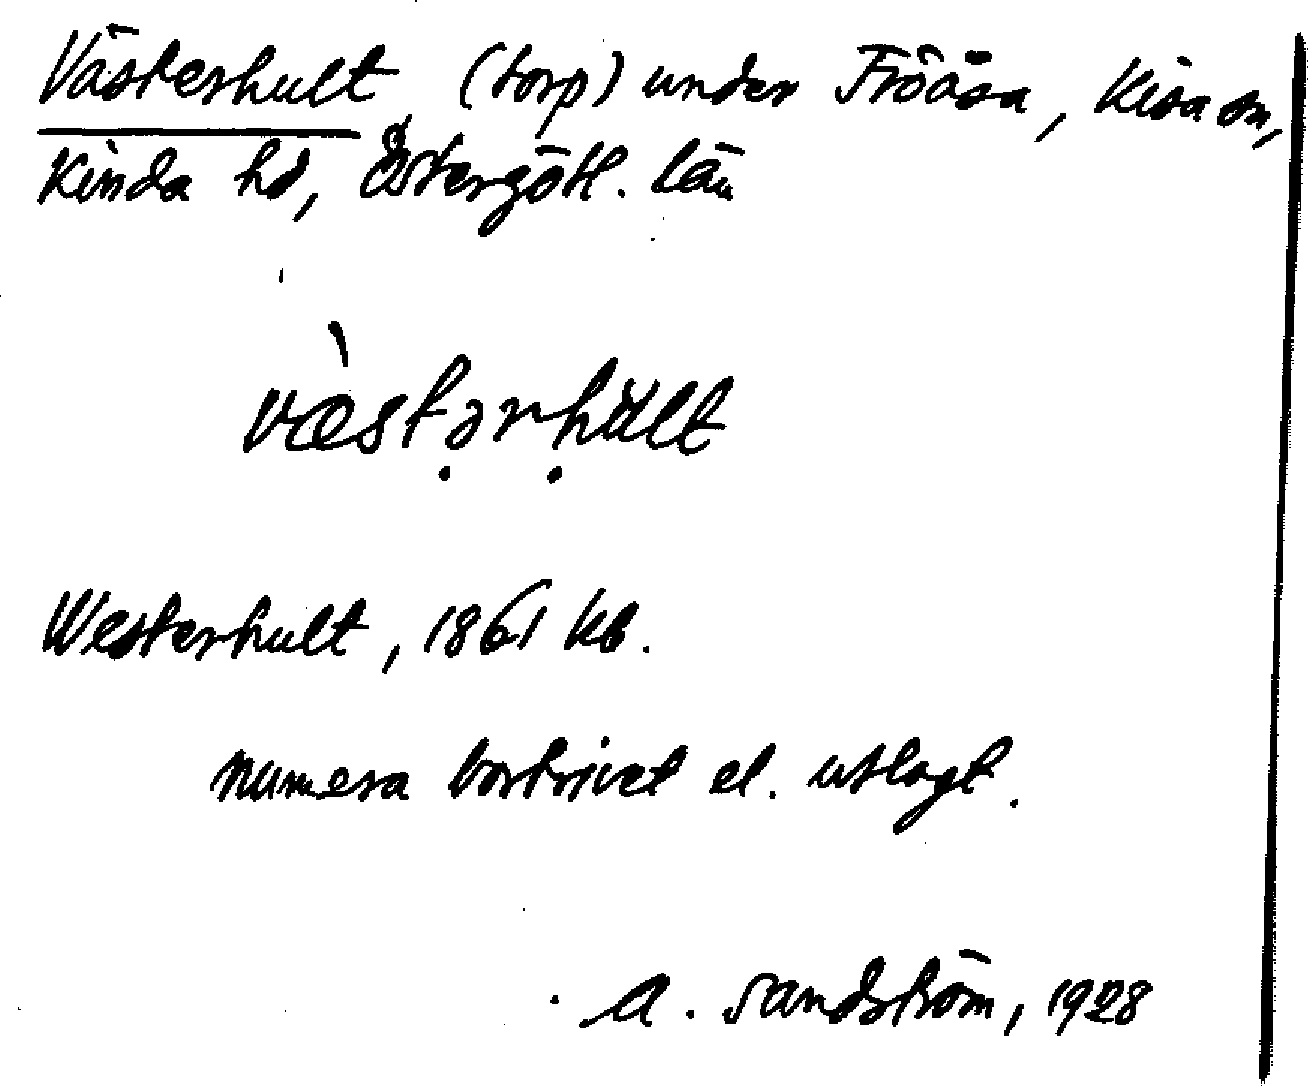 Västerhult (torp) under Fröåsa, Kisa sn,
Kinda hd, Östergötl. län
væ̀stə̣rḥult
Westerhult, 1861 kb.
numera bortrivet el. utlagt.
A. Sandström, 1928